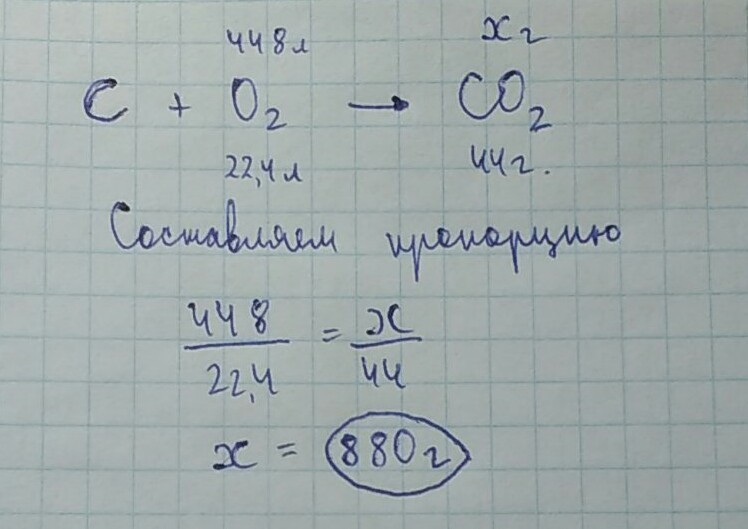 448л xг
C + O₂ → CO₂
22,4л 44г.
Составляем пропорцию
448/22,4 = x/44
x = 880г